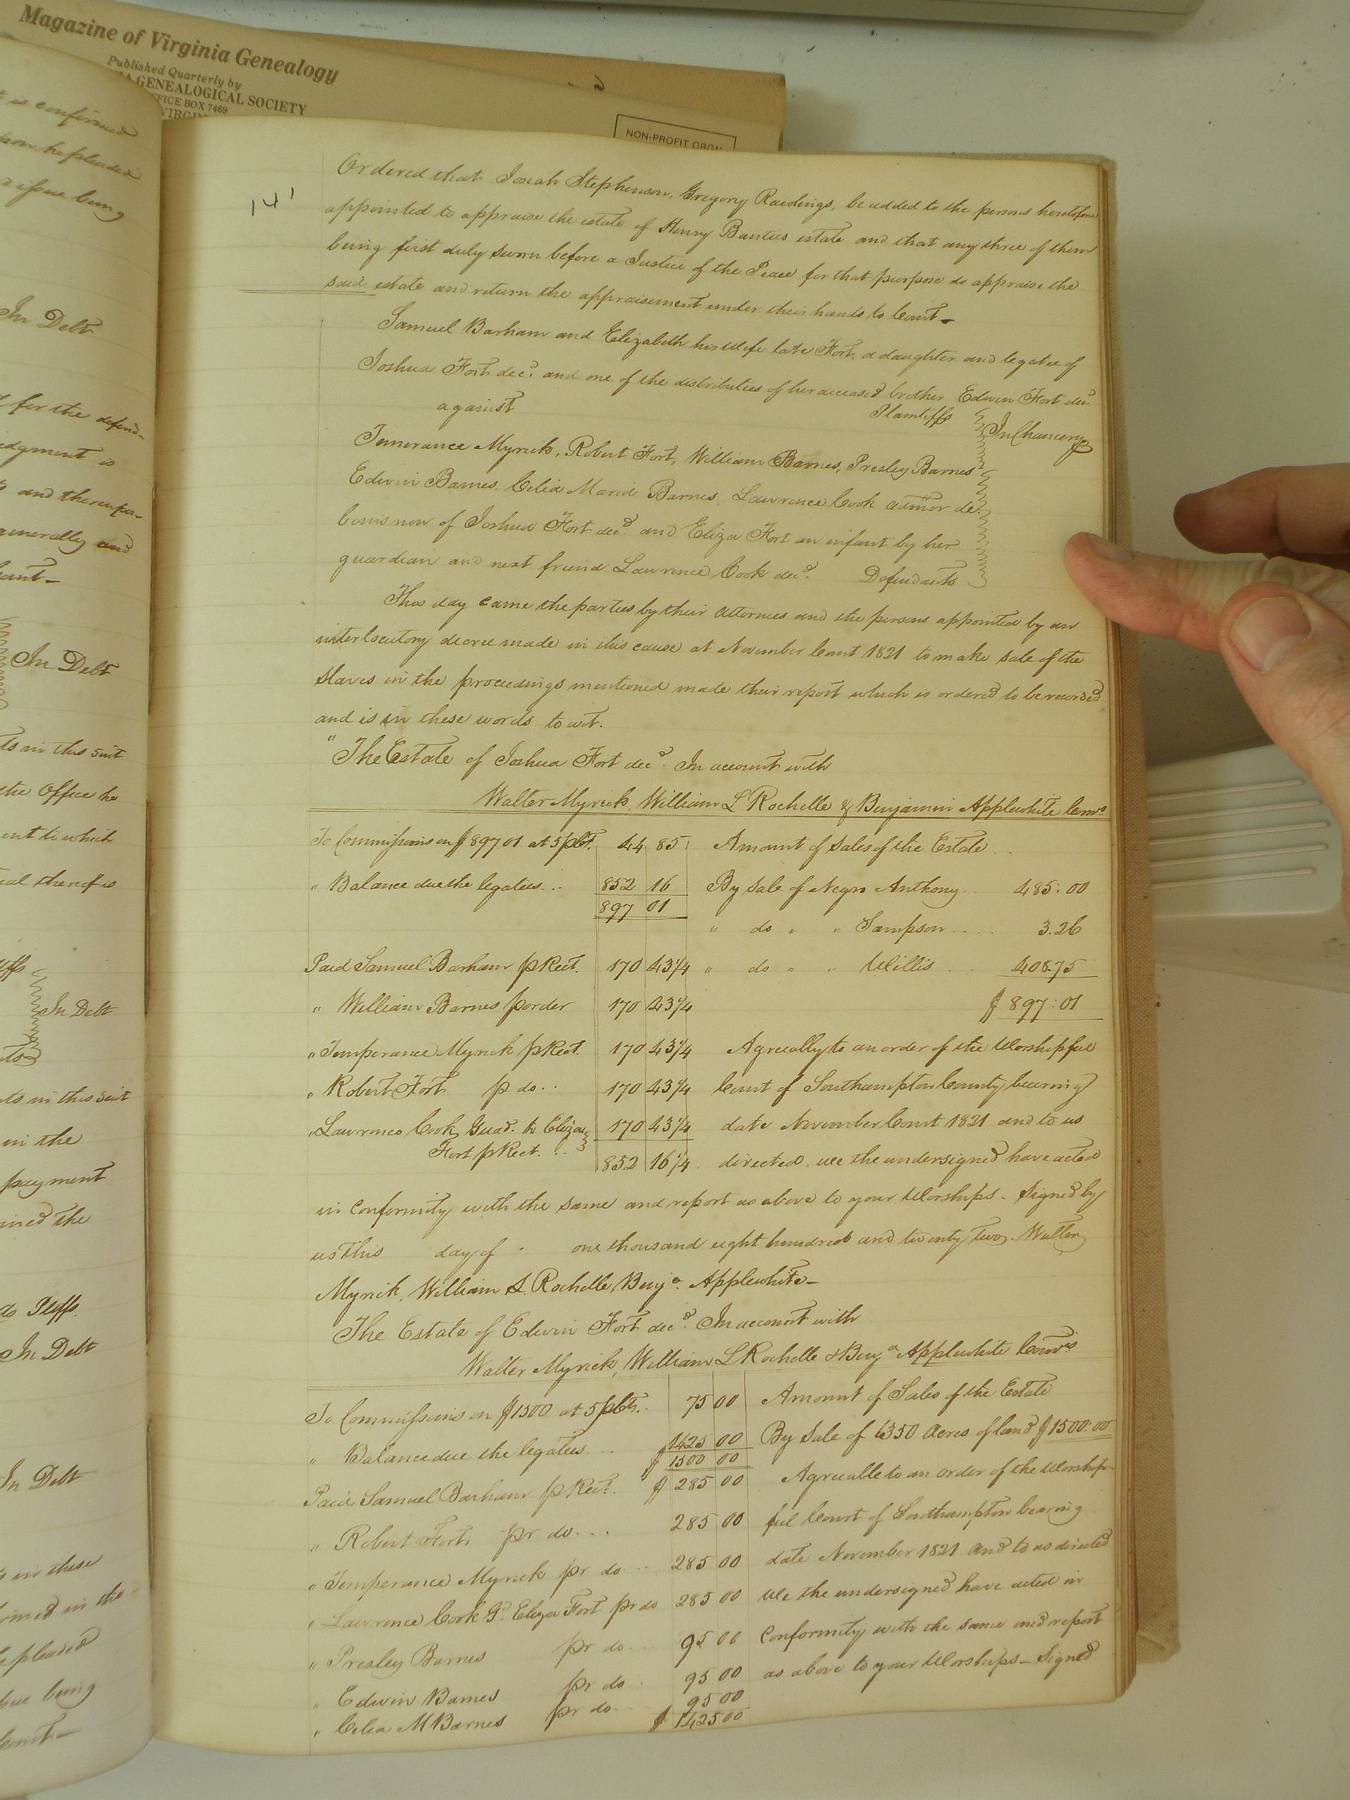 Magazine of Virginia Genealogy
Published Quarterly by
GENEALOGICAL SOCIETY
OFFICE BOX 7469
NON-PROFIT ORGN
141
Ordered that Josiah Stephenson, Gregory Rawlings, be added to the persons heretofore
appointed to appraise the estate of Henry Bantus estate and that any three of them
being first duly sworn before a Justice of the Peace for that purpose do appraise the
said estate and return the appraisement under their hands to Court
Samuel Barham and Elizabeth his wife late Fort, a daughter and legatee of
Joshua Fort decd. and one of the distributees of her deceased brother Edwin Fort decd
Plaintiffs
against
In Chancery
Temperance Myrick, Robert Fort, William Barnes, Presley Barnes
Edwin Barnes, Celia Maria Barnes, Lawrence Cook admor de
bonis non of Joshua Fort decd. and Eliza Fort an infant by her
guardian and next friend Lawrence Cook decd. Defendants
This day came the parties by their attornies and the persons appointed by an
interlocutory decree made in this cause at November Court 1821 to make sale of the
slaves in the proceedings mentioned made their report which is ordered to be recorded
and is in these words to wit.
" The Estate of Joshua Fort decd. In account with
Walter Myrick, William L Rochelle & Benjamin Applewhite Comrs
To Commissions on $897.01 at 5 pct. 44 85 Amount of sales of the Estate
" Balance due the legatees... 852 16 By sale of Negro Anthony.. 485.00
897 01
" do " " Sampson.... 3.26
Paid Samuel Barham p Rect. 170 43 1/4 " do " " Willis.. 408.75
" William Barnes p order 170 43 1/4 $ 897.01
" Temperance Myrick p Rect. 170 43 1/4 Agreeably to an order of the Worshipful
" Robert Fort p do.. 170 43 1/4 Court of Southampton County bearing
" Lawrence Cook Guad. to Eliza 170 43 1/4 date November Court 1821 and to us
Fort p Rect. 852 16 1/4 directed, we the undersigned have acted
in conformity with the same and report as above to your Worships - Signed by
us this day of one thousand eight hundred and twenty two. Walter
Myrick, William L Rochelle, Benja. Applewhite -
The Estate of Edwin Fort decd. In account with
Walter Myrick, William L Rochelle & Benja Applewhite Comrs
To Commissions on $1500 at 5 pCt.. 75 00 Amount of Sales of the Estate
" Balance due the legatees... $ 1425 00 By sale of 6350 Acres of land $1500.00
$ 1500 00
Paid Samuel Barham p Rect. $ 285 00 Agreeable to an order of the Worship-
" Robert Fort pr do... 285 00 ful Court of Southampton bearing
" Temperance Myrick pr do.. 285 00 date November 1821 and to us directed
" Lawrence Cook Gd. Eliza Fort pr do 285 00 We the undersigned have acted in
" Presley Barnes pr do... 95 00 conformity with the same and report
" Edwin Barnes pr do.. 95 00 as above to your Worships - Signed
" Celia M Barnes pr do.. 95 00
$ 1425 00
In Debt
for the defend-
judgment is
and thereupon
generally and
In Debt
in this suit
the Office be
In Debt
in this suit
in the
payment
the
Pltffs.
In Debt
In Debt
in these
in the
pleased
being